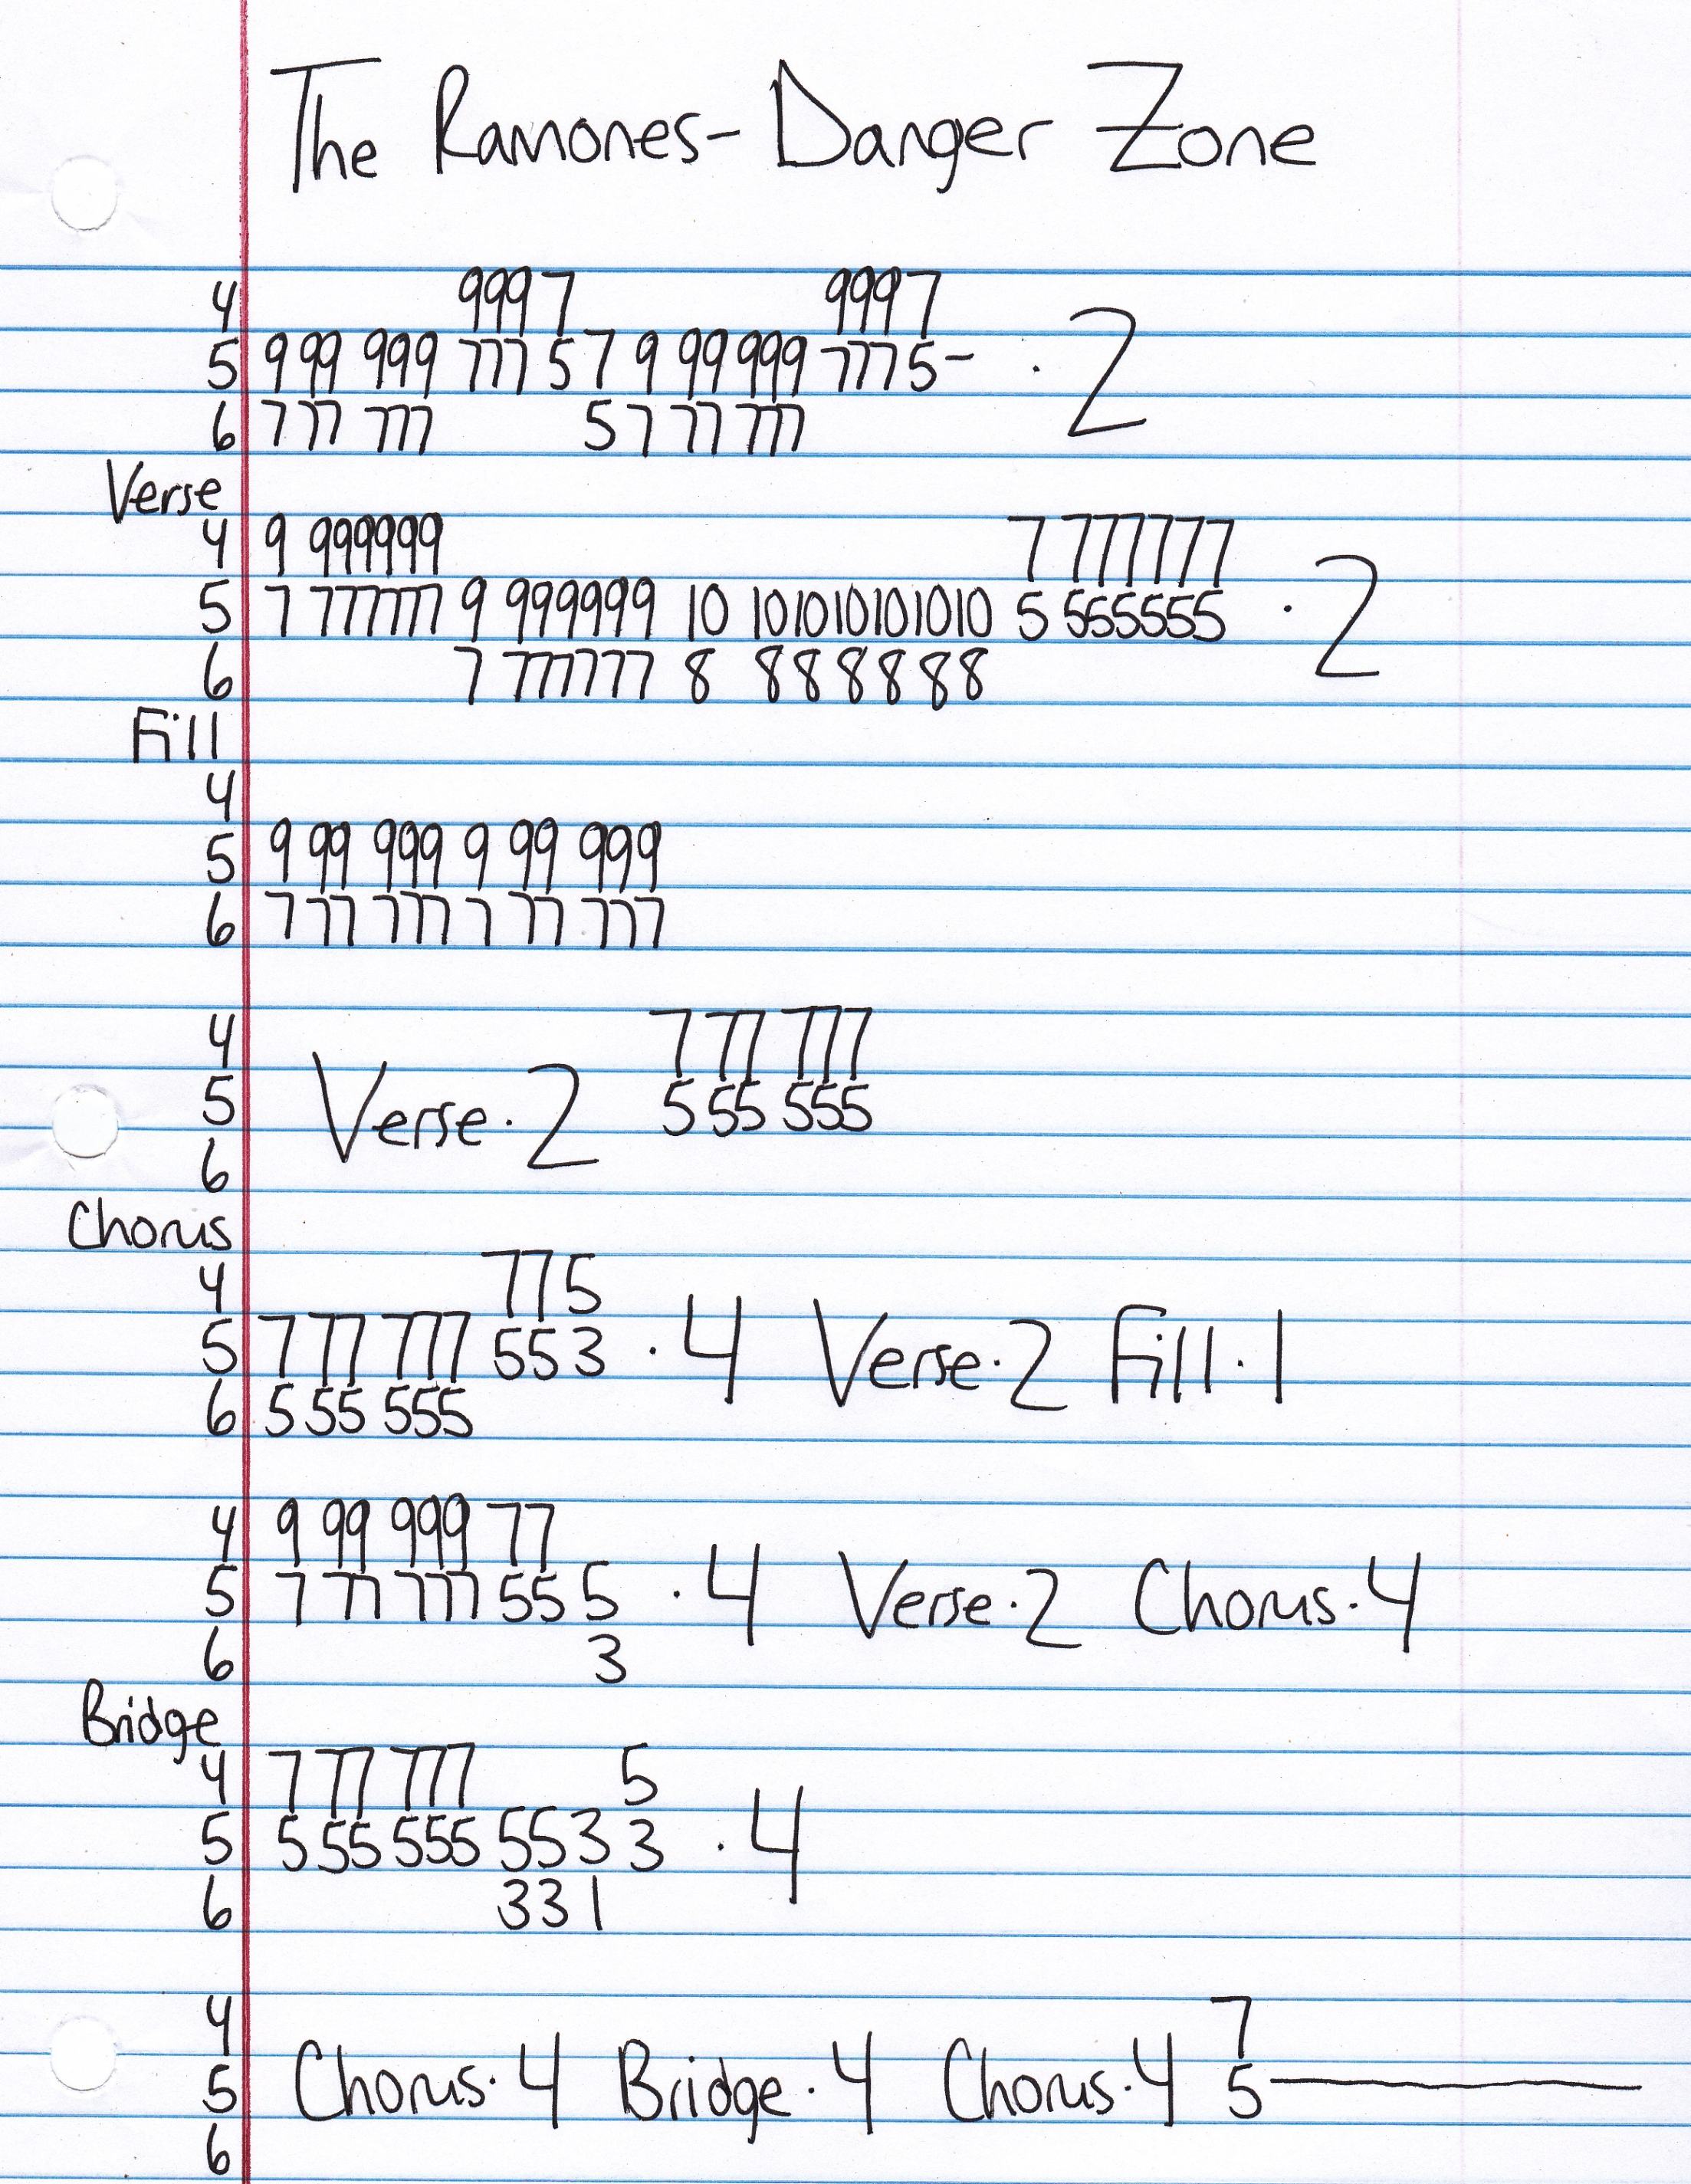 The Ramones- Danger Zone
4 9997 9997
5 9 99 999 777 5 7 9 99 999 7775- · 2
6 7 77 777 5 7 77 777
Verse
4 9 999999 7 777777
5 7 777777 9 999999 10 101010101010 5 555555 · 2
6 7 777777 8 888888
Fill
4
5 9 99 999 9 99 999
6 7 77 777 7 77 777
4 7 77 777
5 Verse · 2 5 55 555
6
Chorus
4 775
5 7 77 777 553 · 4 Verse · 2 Fill · 1
6 5 55 555
4 9 99 999 77
5 7 77 777 55 5 · 4 Verse · 2 Chorus · 4
6 3
Bridge
4 7 77 777 5
5 5 55 555 553 3 · 4
6 331
4 7
5 Chorus · 4 Bridge · 4 Chorus · 4 5—
6